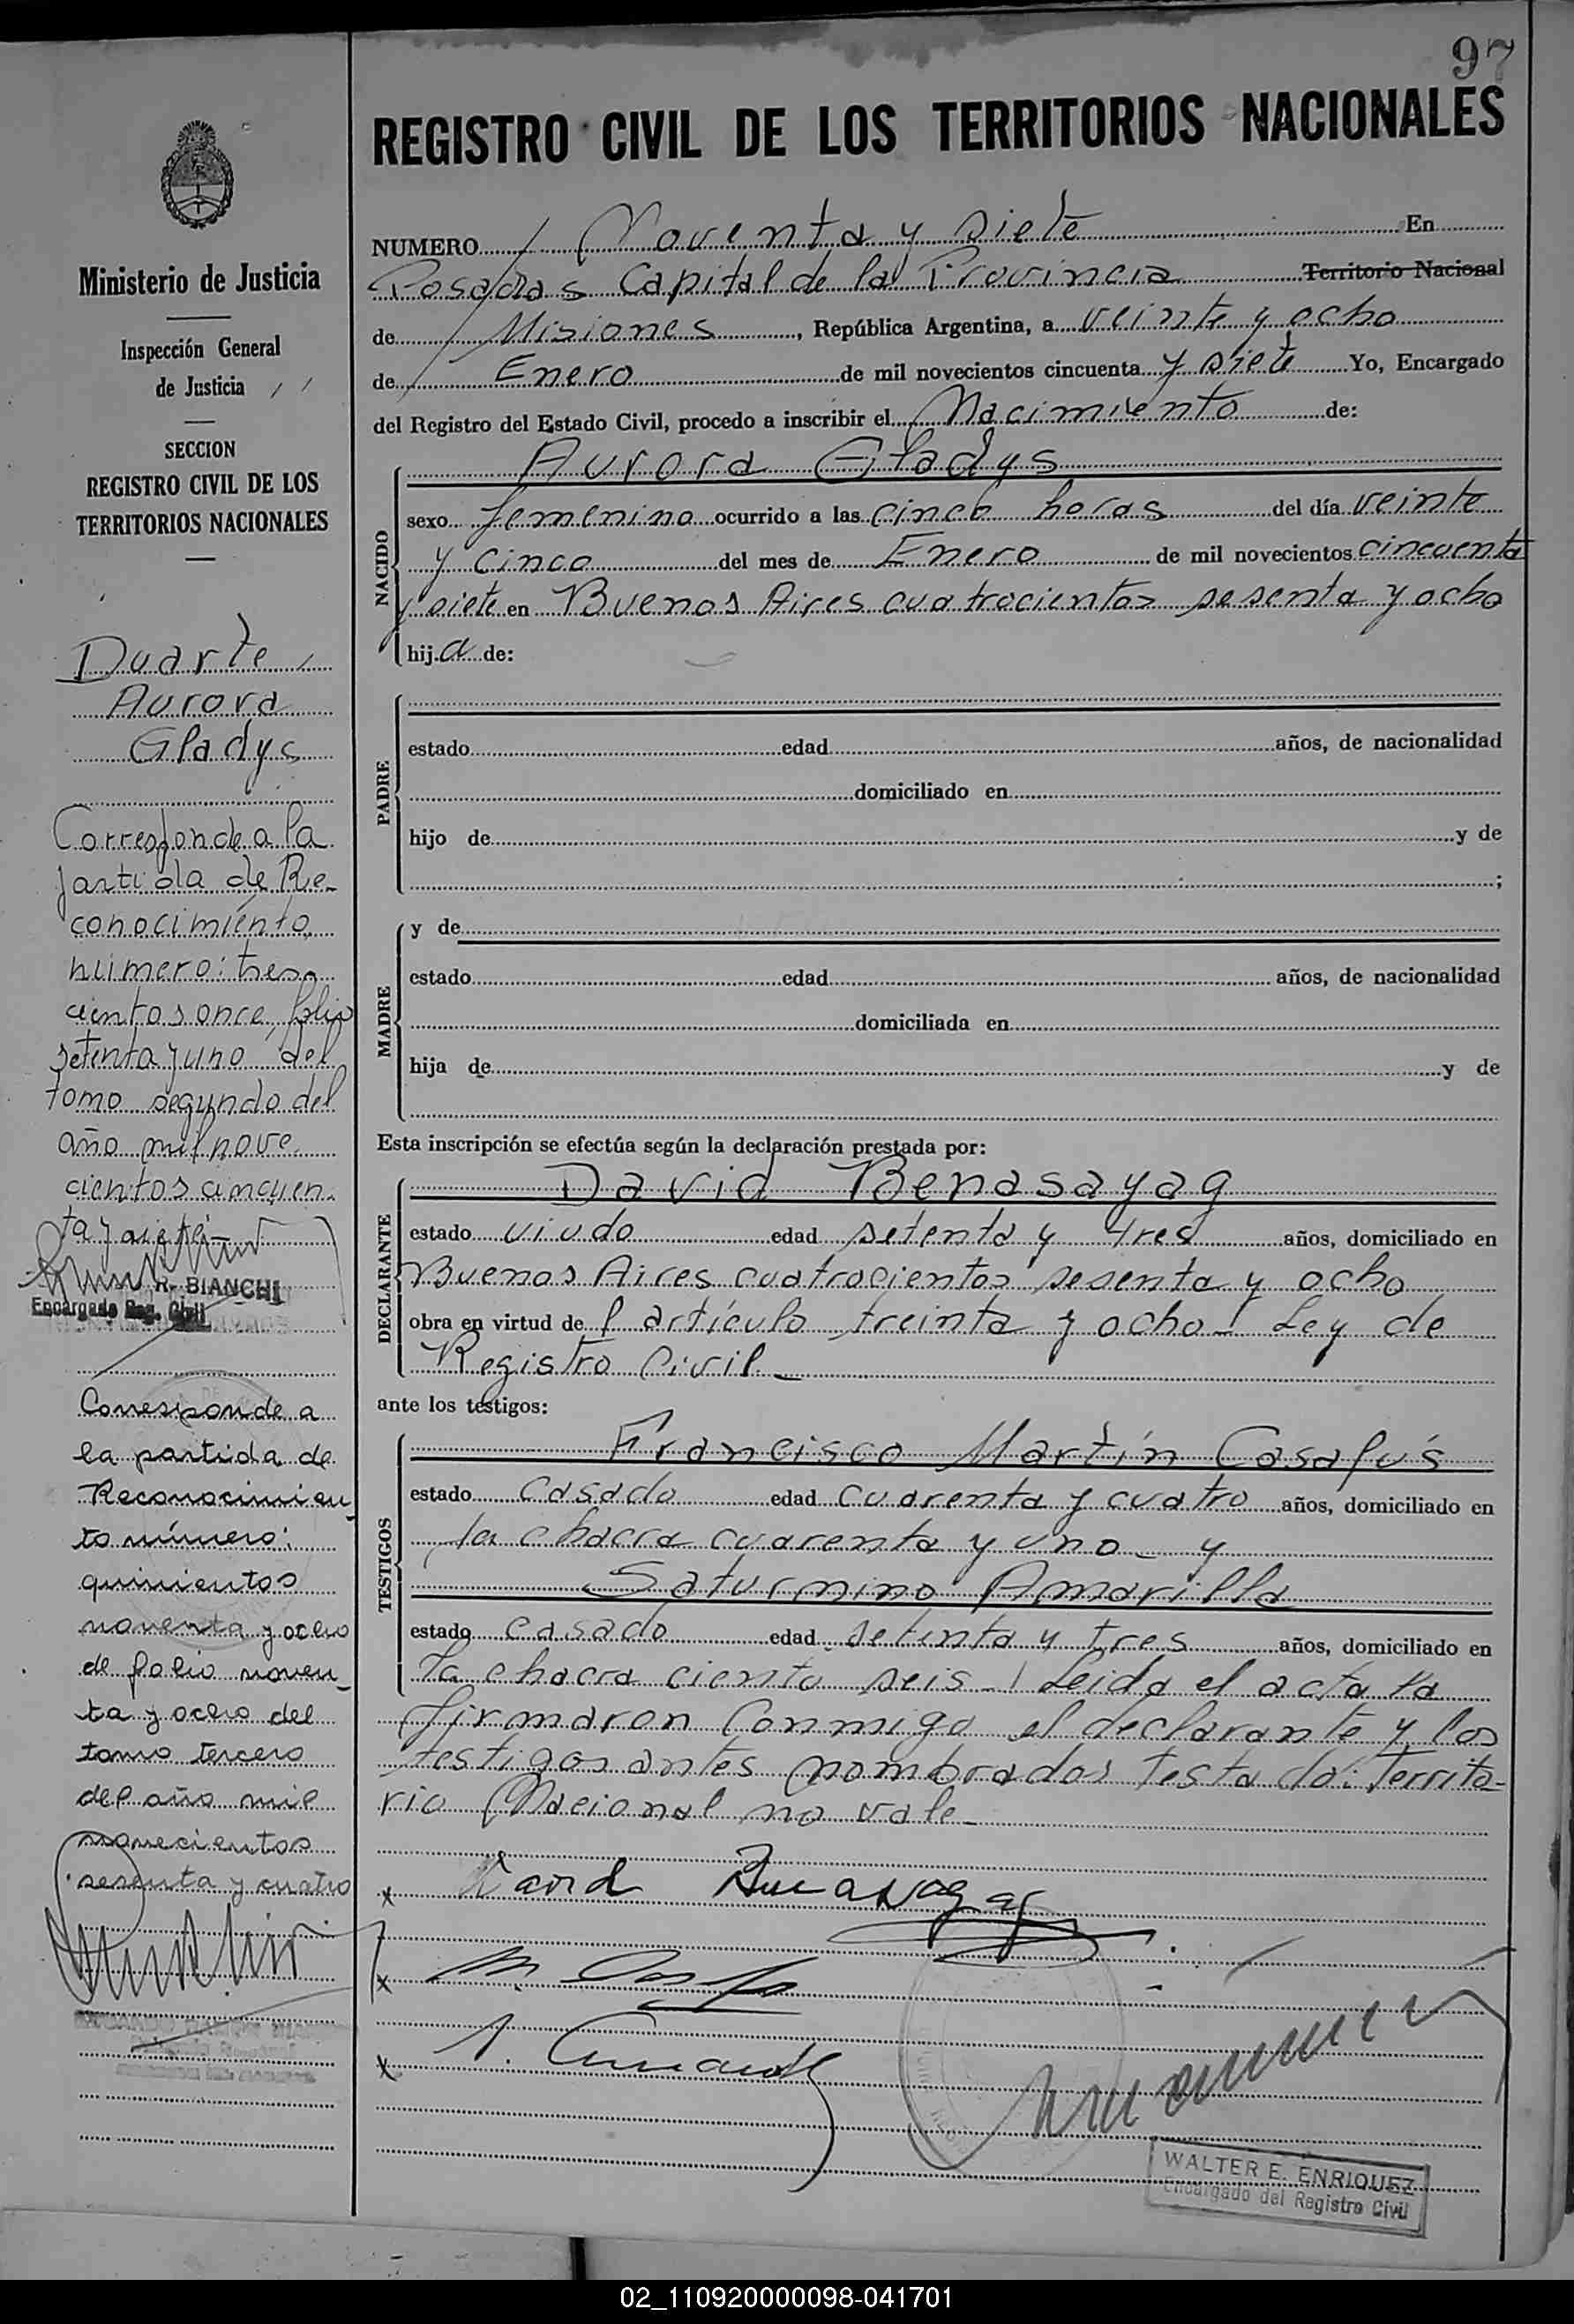 97
REGISTRO CIVIL DE LOS TERRITORIOS NACIONALES
NUMERO Noventa y siete En
Posadas Capital de la Provincia Territorio Nacional
de Misiones, República Argentina, a veinte y ocho
de Enero de mil novecientos cincuenta y siete Yo, Encargado
del Registro del Estado Civil, procedo a inscribir el Nacimiento de:
NACIDO
Aurora Gladys
sexo femenino ocurrido a las cinco horas del día veinte
y cinco del mes de Enero de mil novecientos cincuenta
y siete en Buenos Aires cuatrocientos sesenta y ocho
hij.a de:
PADRE
estado edad años, de nacionalidad
domiciliado en
hijo de y de
;
MADRE
y de
estado edad años, de nacionalidad
domiciliada en
hija de y de
Esta inscripción se efectúa según la declaración prestada por:
DECLARANTE
David Benasayag
estado viudo edad setenta y tres años, domiciliado en
Buenos Aires cuatrocientos sesenta y ocho
obra en virtud de l artículo treinta y ocho - Ley de
Registro Civil -
ante los testigos:
TESTIGOS
Francisco Martín Casafús
estado casado edad cuarenta y cuatro años, domiciliado en
la chacra cuarenta y uno - y
Saturnino Amarilla
estado casado edad setenta y tres años, domiciliado en
la chacra ciento seis - Leida el acta la
firmaron conmigo el declarante y los
testigos antes nombrados Testado: Territo-
rio Nacional no vale -
x David Benasayag
x
x
WALTER E. ENRIQUEZ
Encargado del Registro Civil
Ministerio de Justicia
Inspección General
de Justicia
SECCION
REGISTRO CIVIL DE LOS
TERRITORIOS NACIONALES
Duarte,
Aurora
Gladys
Corresponde a la
partida de Re-
conocimiento
número: tres-
cientos once, folio
setenta y uno del
tomo segundo del
año mil nove
cientos cincuen-
ta y siete -
R. BIANCHI
Encargado Reg. Civil
Corresponde a
la partida de
Reconocimien-
to número:
quinientos
noventa y ocho
del folio noven-
ta y ocho del
tomo tercero
del año mil
novecientos
sesenta y cuatro
02_110920000098-041701